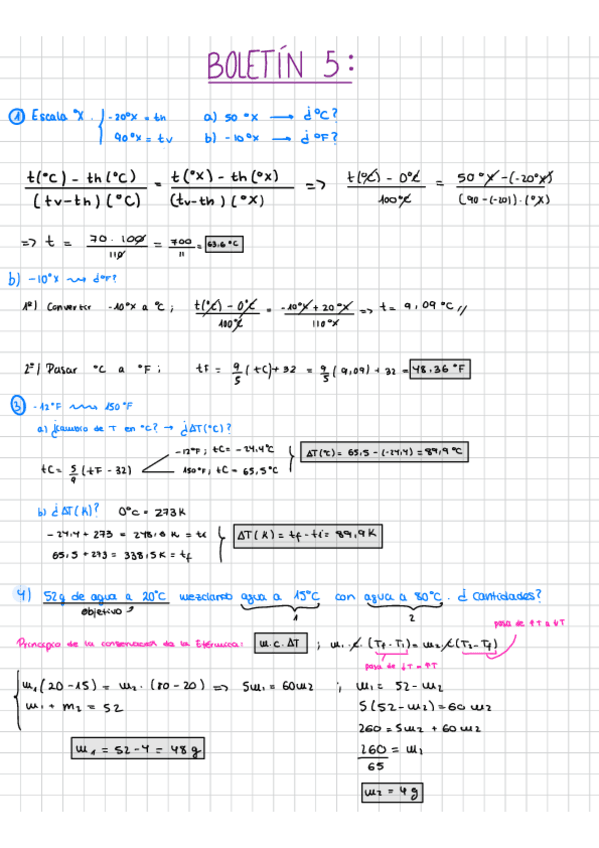 BOLETÍN 5:
1) Escala ºX. { -20ºX = th a) 50 ºX → ¿ºC?
90ºX = tv b) -10ºX → ¿ºF?
t(ºC) - th(ºC) / (tv-th)(ºC) = t(ºX) - th(ºX) / (tv-th)(ºX) => t(ºC) - 0ºC / 100ºC = 50ºX-(-20ºX) / (90-(-20))·(ºX)
=> t = 70·100 / 110 = 700 / 11 = 63.6ºC
b) -10ºX ⇝ ¿ºF?
1º) Convertir -10ºX a ºC; t(ºC) - 0ºC / 100ºC = -10ºX + 20ºX / 110ºX => t = 9,09ºC //
2º) Pasar ºC a ºF; tF = 9/5 (tC)+32 = 9/5 (9,09) + 32 = 48.36 ºF
3) -12ºF ⇝ 150ºF
a) ¿cambio de T en ºC? → ¿ΔT(ºC)?
tC = 5/9 (tF - 32) -12ºF; tC = -24,4ºC
150ºF; tC = 65,5ºC } ΔT(ºC) = 65,5 - (-24,4) = 89,9ºC
b) ¿ΔT(K)? 0ºC = 273K
-24,4 + 273 = 248,6 K = ti
65,5 + 273 = 338,5K = tf } ΔT(K) = tf - ti = 89,9K
4) 52g de agua a 20ºC mezclando agua a 15ºC con agua a 80ºC. ¿Cantidades?
objetivo 1 2
pasa de ↑T a ↓T
Principio de la conservación de la E térmica: m.c.ΔT ; m1·c·(Tf-T1) = m2·c(T2-Tf)
pasa de ↓T a ↑T
{ m1(20-15) = m2·(80-20) => 5m1 = 60m2 ; m1 = 52 - m2
m1 + m2 = 52 5(52-m2) = 60 m2
260 = 5m2 + 60m2
m1 = 52-4 = 48g 260/65 = m2
m2 = 4g